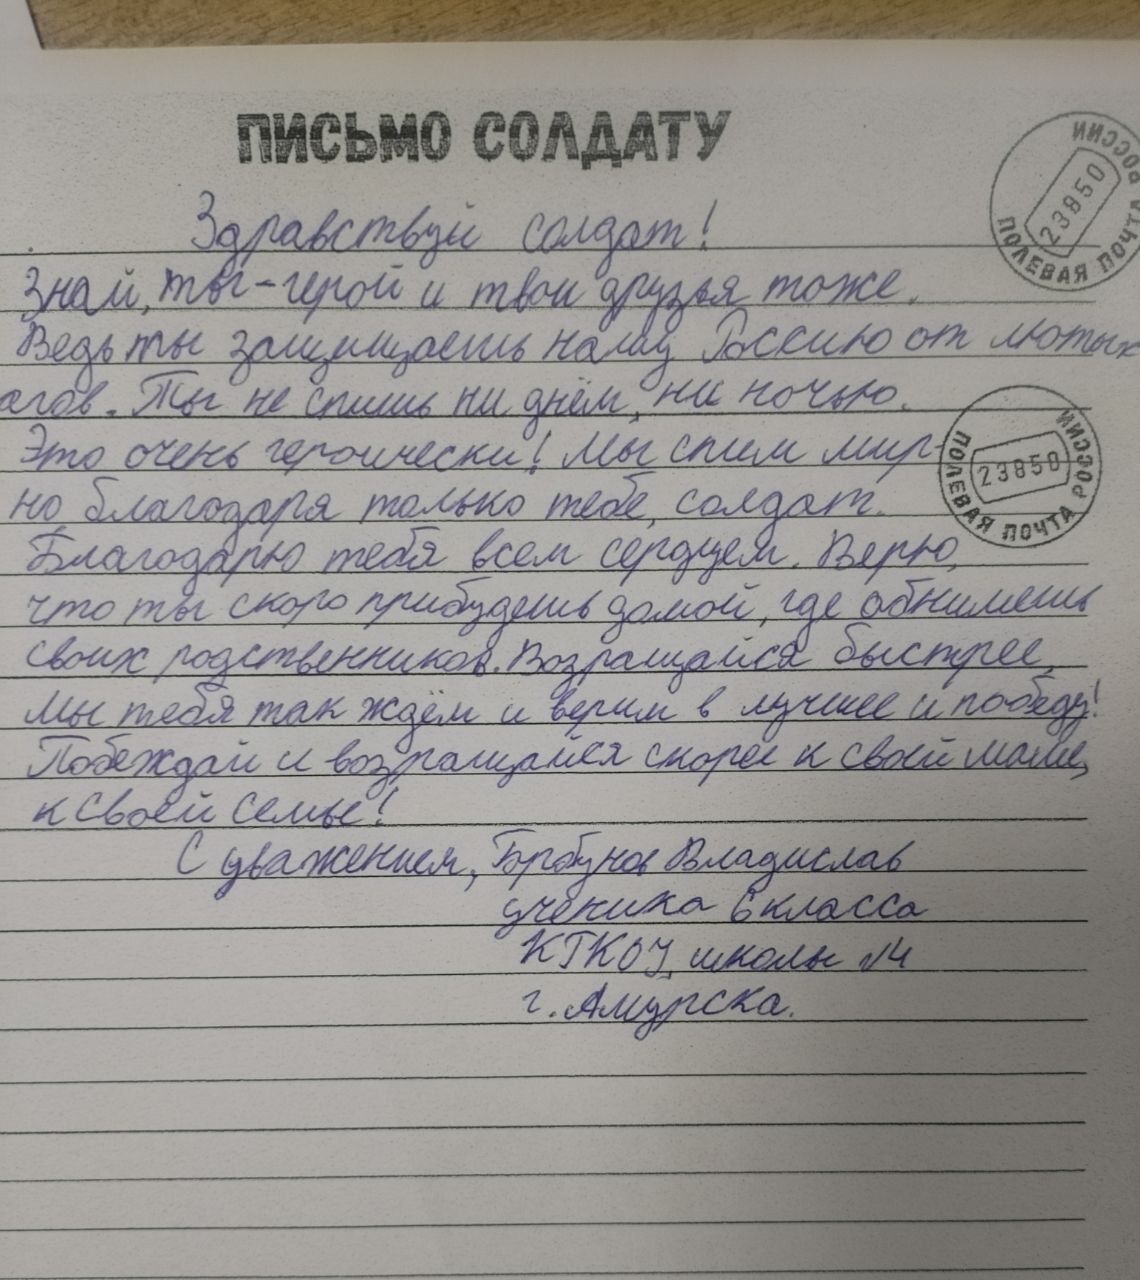 ПИСЬМО СОЛДАТУ
ПОЛЕВАЯ ПОЧТА РОССИИ
23850
Здравствуй солдат!
Знай, ты - герой и твои друзья тоже.
Ведь ты защищаешь нашу Россию от лютых
агов. Ты не спишь ни днём, ни ночью.
Это очень героически! Мы спим мир-
но благодаря только тебе, солдат.
ПОЛЕВАЯ ПОЧТА РОССИИ
23850
Благодарю тебя всем сердцем. Верю,
что ты скоро прибудешь домой, где обнимешь
своих родственников. Возращайся быстрее,
Мы тебя так ждём и верим в лучшее и победу!
Побеждай и возращайся скорее к своей маме,
к своей семье!
С уважением, Горбунов Владислав
ученика 6 класса
КГКОУ школы №4
г. Амурска.